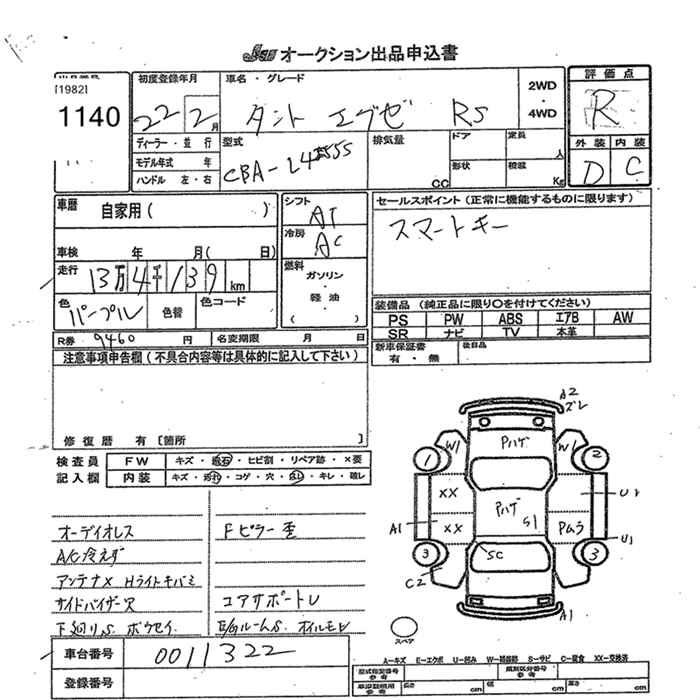 JU オークション出品申込書
[1982]
1140
初度登録年月 22 2月
車名・グレード タント エグゼ RS
2WD・4WD
評価点 R
ディーラー・並行
モデル年式 年
ハンドル 左・右
型式 CBA-L455S
排気量 CC
ドア 定員 人
形状 積載 Kg
外装 内装
D C
車歴 自家用( )
シフト AT
セールスポイント(正常に機能するものに限ります)
スマートキー
冷房 AC
車検 年 月( 日)
走行 13万4千139km
燃料 ガソリン・軽油・( )
色 パープル 色替 色コード
装備品(純正品に限り○を付けてください)
PS PW ABS エアB AW
SR ナビ TV 本革
R券 9460円 名変期限 月 日
新車保証書 有・無 後日品
注意事項申告欄(不具合内容等は具体的に記入して下さい)
修復歴 有[箇所
検査員 FW キズ・飛石・ヒビ割・リペア跡・×要
記入欄 内装 キズ・汚れ・コゲ・穴・キレ・破レ
オーディオレス Fピラー歪
A/C冷えず
アンテナX Hライトキバミ
サイドバイザー欠 コアサポートU
下廻りS ボウセイ E/gルームS オイルモレ
車台番号 0011322
登録番号
A2
ズレ
Pハゲ
W1 W1
1 2
XX Pハゲ U1
A1 XX S1 Pムラ U1
3 SC 3
C2
A1
スペア
A-キズ E-エクボ U-凹み W-補修跡 S-サビ C-腐食 XX-交換済
型式指定番号 参考 類別区分番号 参考
参考 長さ cm 幅 cm 高さ cm